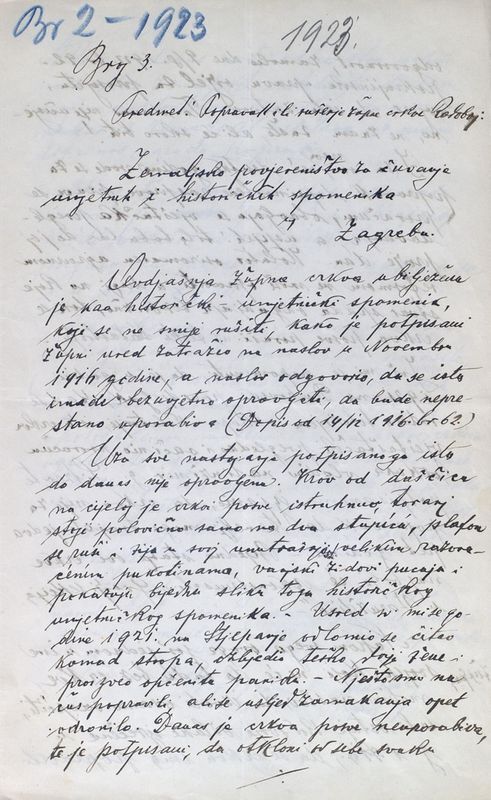 Br 2 - 1923
1923.
Broj 3.
Predmet: Popravak ili rušenje župne crkve Radoboj.
Zemaljsko povjereništvo za čuvanje
umjetnih i historičkih spomenika
u
Zagrebu.
Ovdjašnja župna crkva ubilježena
je kao historički umjetnički spomenik,
koji se ne smije rušiti, kako je potpisani
župni ured zatražio na naslov u Novembru
1916 godine, a naslov odgovorio, da se ista
imade bezuvjetno opravljati, da bude nepre-
stano uporabiva (Dopis od 14/12 1916. br. 62.)
Uza sve nastojanje potpisanoga ista
do danas nije opravljena. Krov od daščica
na cijeloj je crkvi posve istruhnuo, toranj
stoji polovično samo na dva stupića, plafon
se ruši, zija u svoj unutrašnjosti velikim
čenim pukotinama, vanjski zidovi pucaju i
pokazuju bijednu sliku toga historičkog
umjetničkog spomenika. - Usred sv. mise go-
dine 1921. na Stjepanje odlomio se čitav
komad stropa, ozlijedio teško dvije žene i
proizveo općenitu paniku. - Mjesto smo na
popraviti ali se usljed zamakanja opet
odronilo. Danas je crkva posve neuporabiva,
te je potpisani, da otkloni od sebe svaku